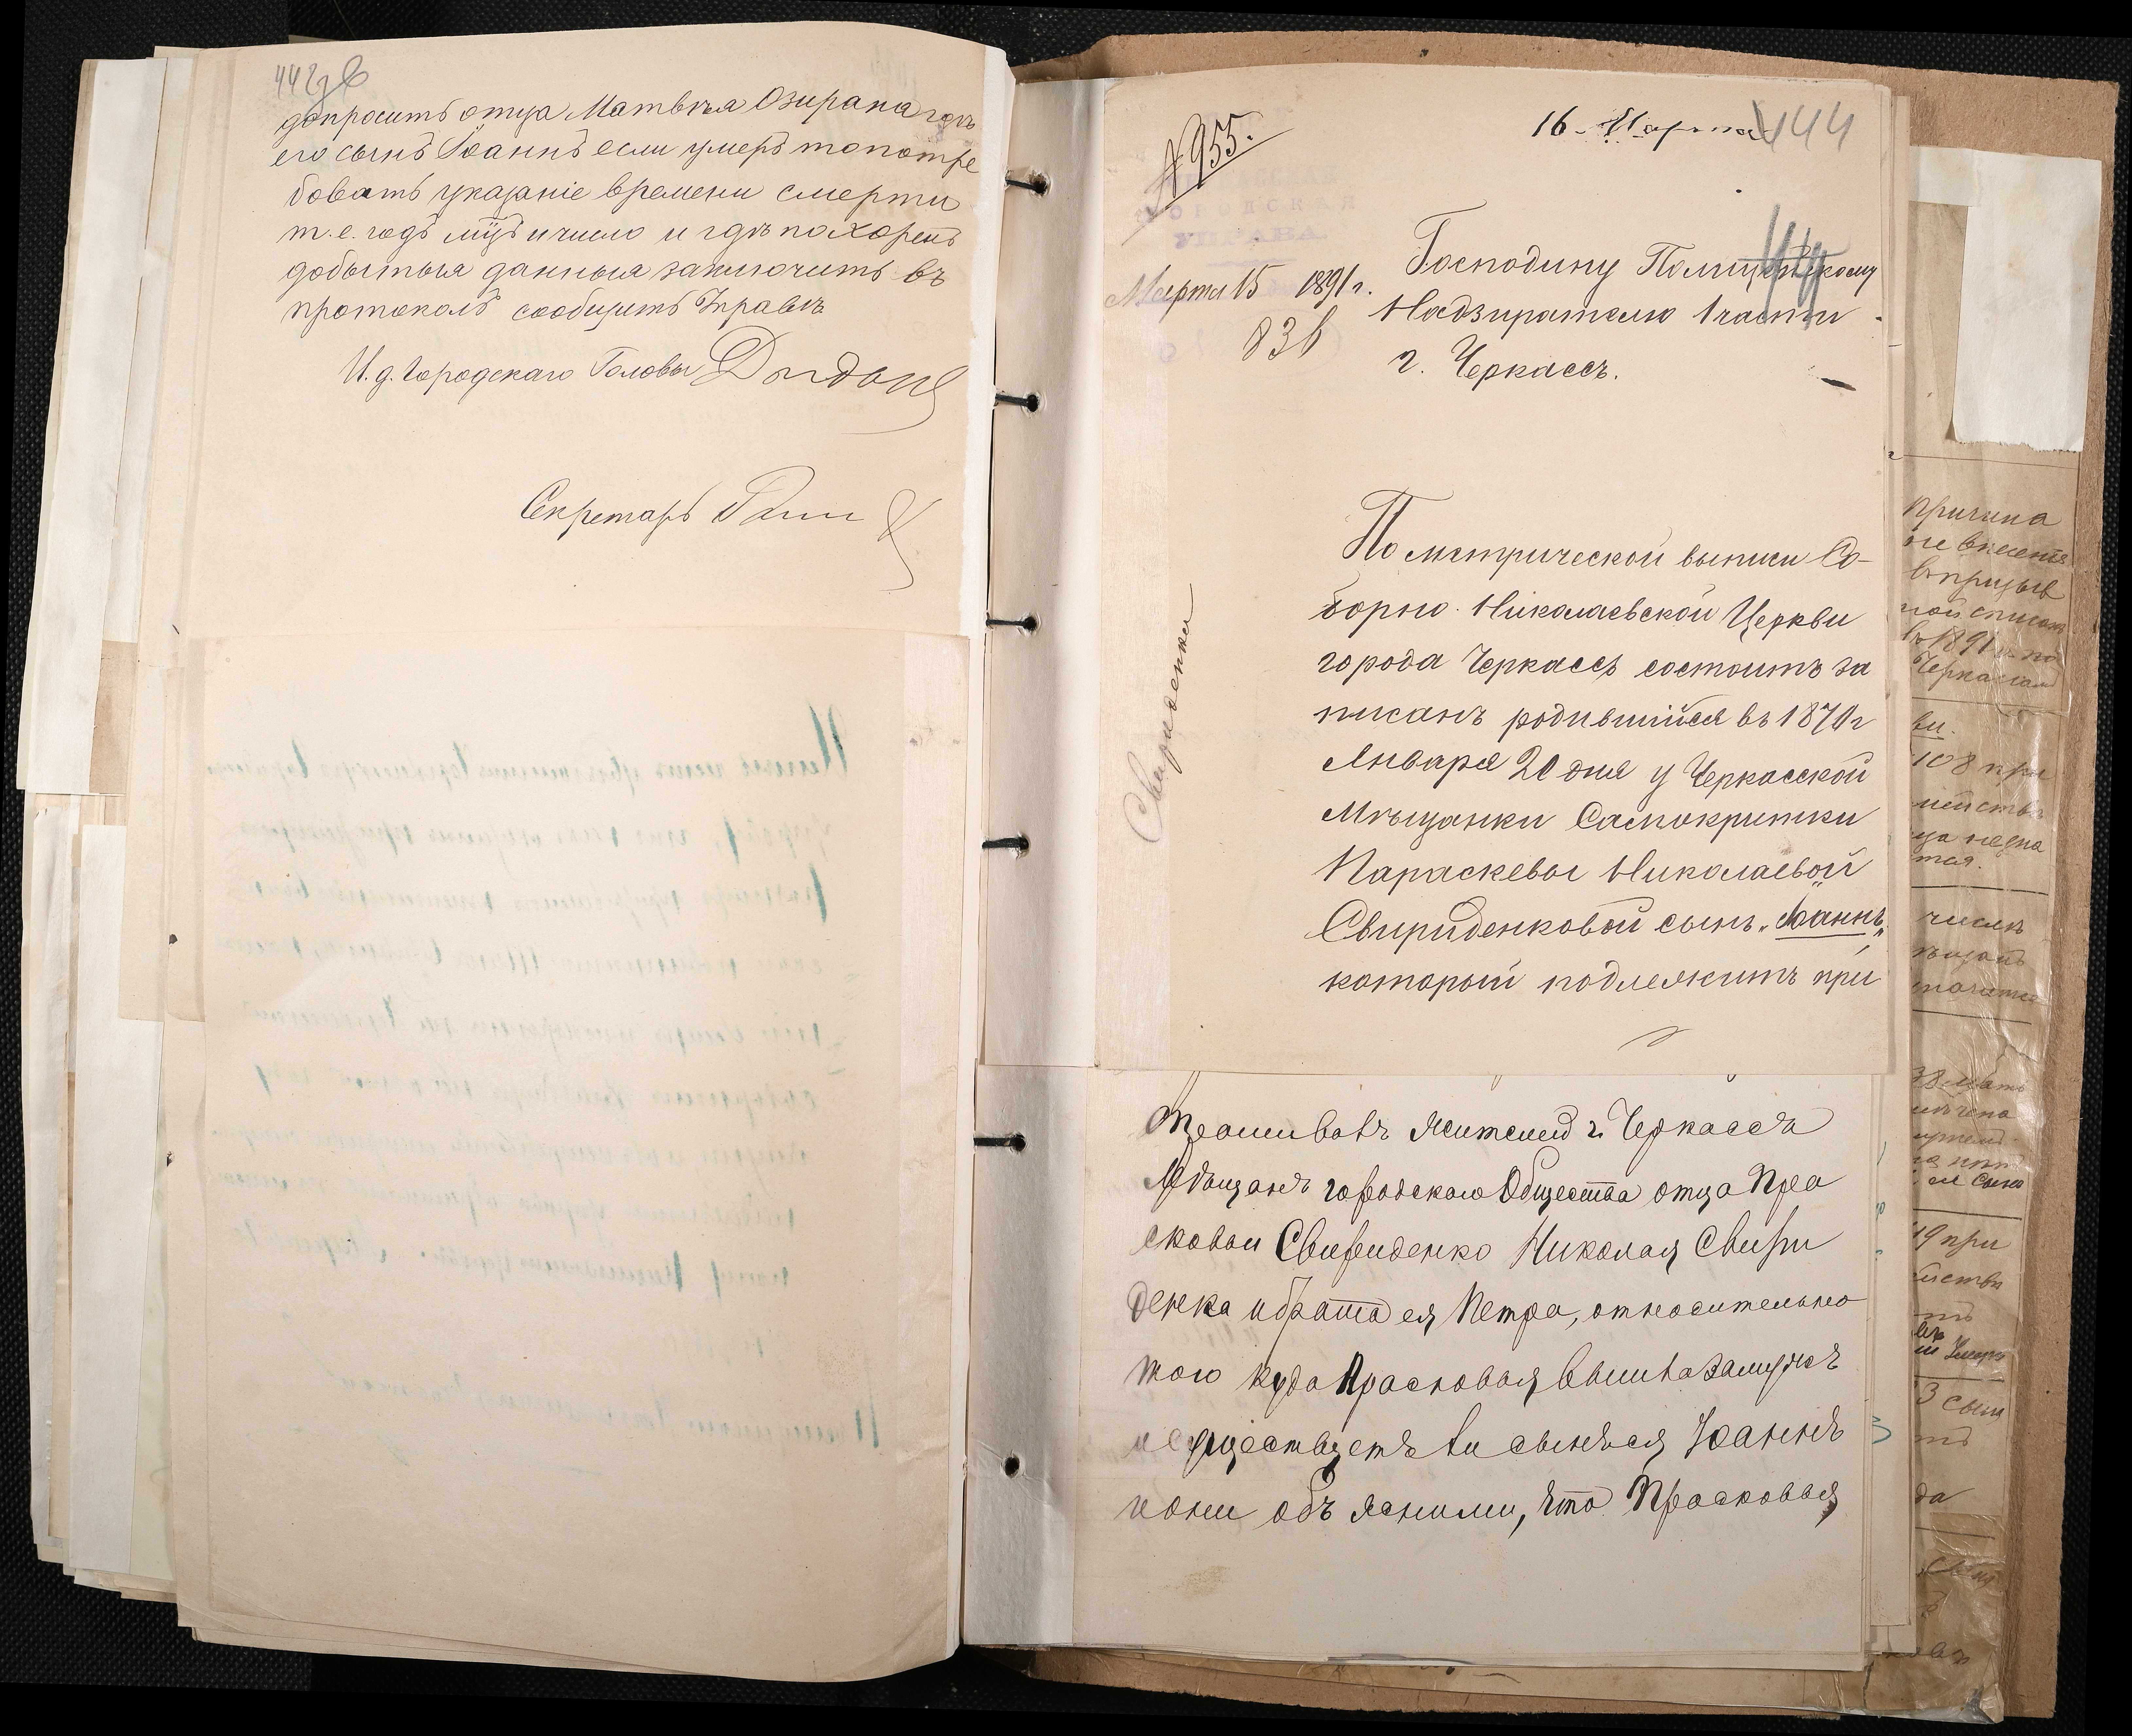 442 об
допросить отца Матвѣя Озирана гдѣ
его сынъ Іоаннъ если умеръ то потре
бовать указаніе времени смерти
т.е. годъ мцъ и число и гдѣ похоренъ
добытыя данныя заключить въ
протоколъ сообщить Управѣ
И.д. Городскаго Головы
Секретарь
№955.
16 Марта
444
УПРАВА
Марта 15 1891 г.
836
Господину Полицейскому
Надзирателю 1 части
г. Черкассъ.
Свириденко
По метрической выписи Со-
борно Николаевской Церкви
города Черкассъ состоитъ за
писанъ родившійся въ 1870 г
Января 20 дня у Черкасской
Мѣщанки Самокритки
Параскевы Николаевой
Свириденковой сынъ „Іоаннъ„
который подлежитъ при
жителей г. Черкассъ
Мѣщанъ городскаго Общества отца Пра
сковьи Свириденко Николая Свири
денка и брата ея Петра, относительно
того куда Прасковья вышла замужъ
и существуетъ ли сынъ ея Іоаннъ
и они объяснили, что Прасковья
Причина
не внесенія
въ призыв
ной списокъ
въ 1891 г. по
Черкасам
108 при
числѣ
19 при
3 сын
да